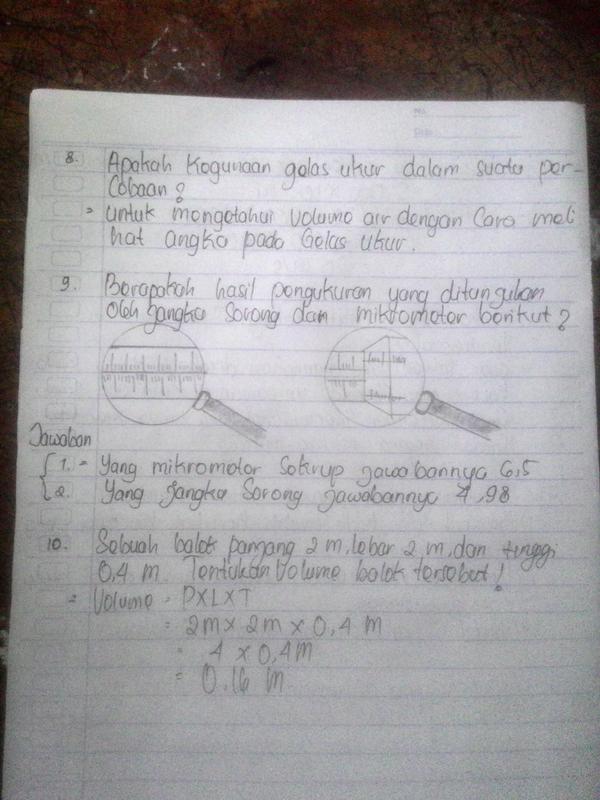 8. Apakah Kegunaan gelas ukur dalam suatu per-
cobaan?
= untuk mengetahui volume air dengan cara meli
hat angka pada Gelas ukur.
9. Berapakah hasil pengukuran yang ditunjukan
Oleh jangka Sorong dan mikrometer berikut?
Jawaban
1. = Yang mikrometer Sekrup jawabannya 6,5
2. Yang jangka Sorong jawabannya 4,98
10. Sebuah balok panjang 2 m, lebar 2 m, dan tinggi
0,4 m. Tentukan Volume balok tersebut!
= Volume = PXLXT
= 2m x 2m x 0,4 m
= 4 x 0,4m
= 0.16 m